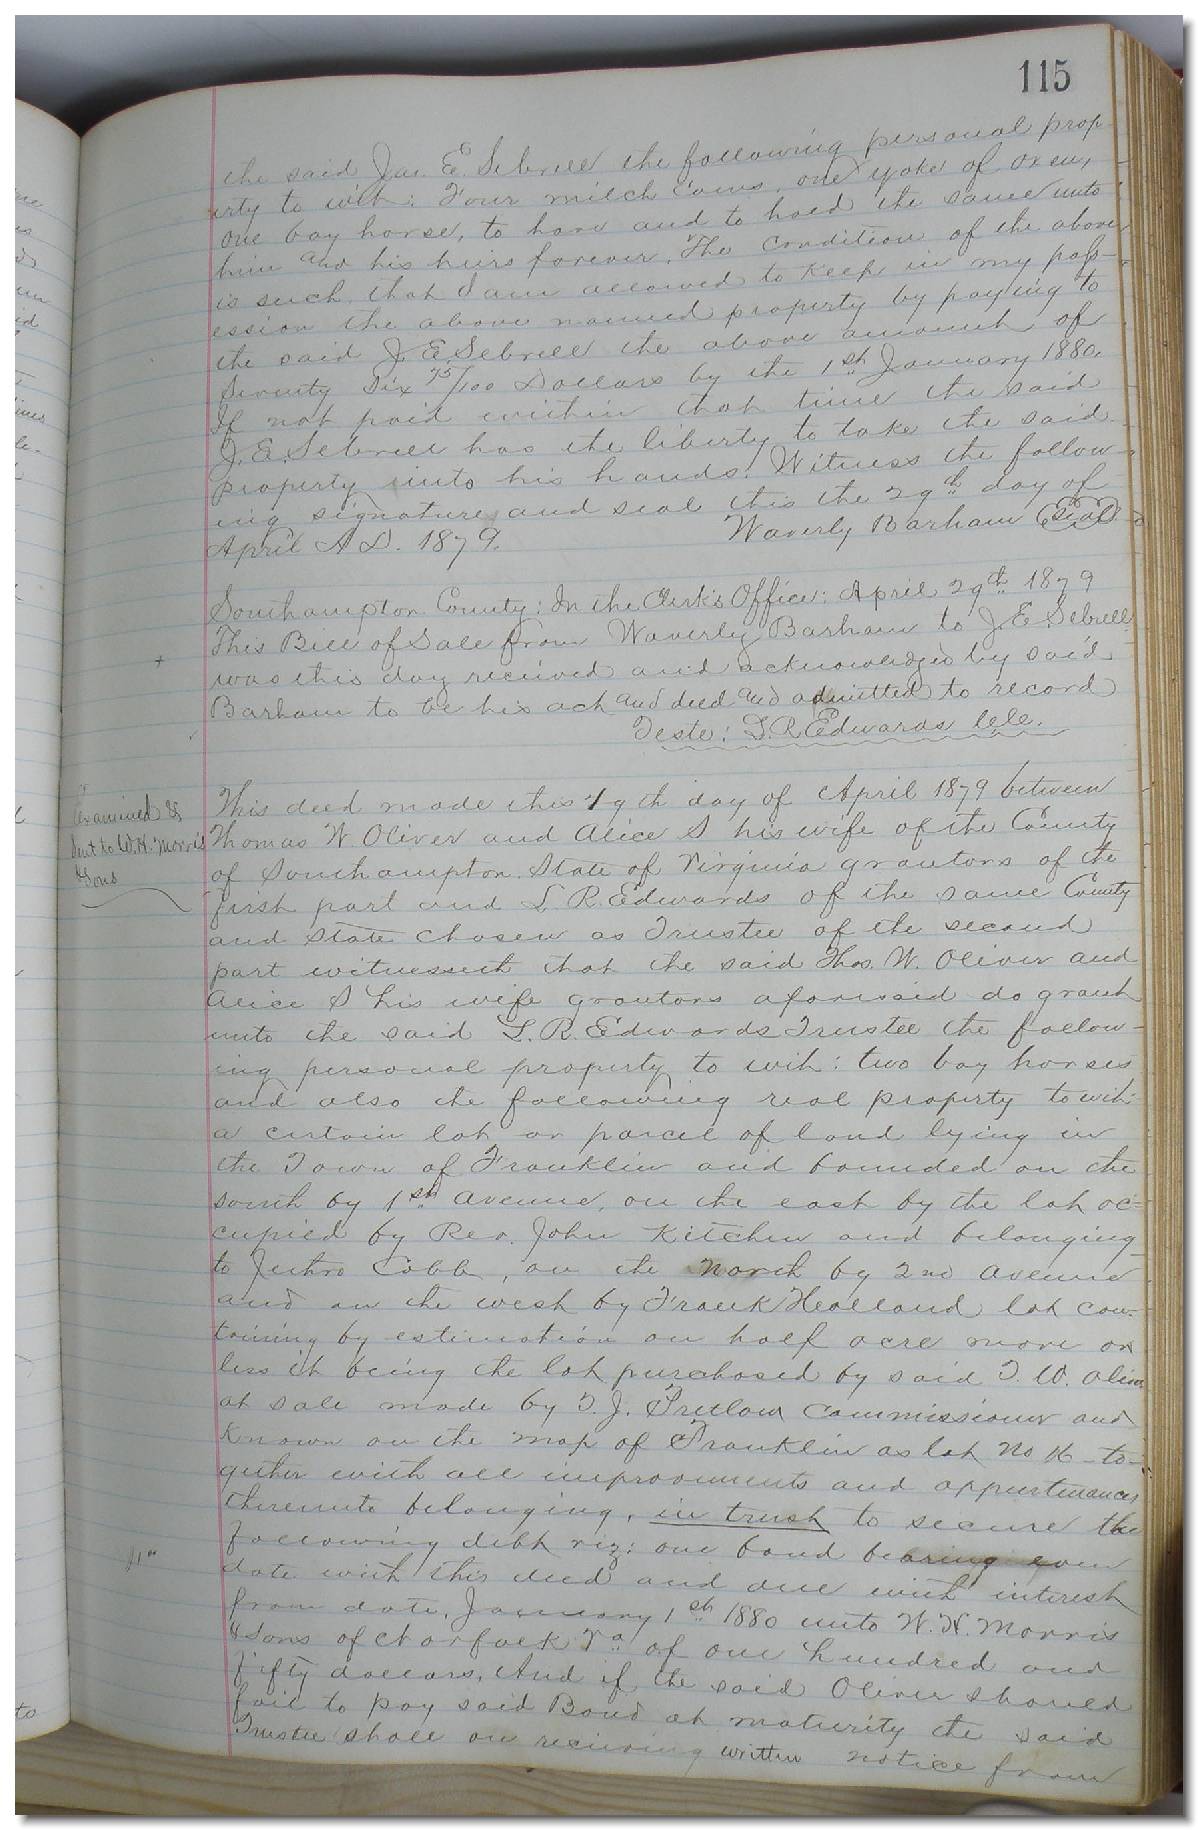 115
the said Jas. E. Sebrell the following personal prop-
erty to wit: Four milch Cows, one yoke of oxen,
one bay horse, to have and to hold the same unto
him and his heirs forever. The condition of the above
is such that I am allowed to keep in my poss-
ession the above named property by paying to
the said J. E. Sebrell the above amount of
Seventy Six 75/100 Dollars by the 1st January 1880.
If not paid within that time the said
J. E. Sebrell has the liberty to take the said
property into his hands. Witness the follow-
ing signature and seal this the 29th day of
April A D. 1879. Waverly Barham (Seal)
Southampton County: In the Clerk's Office: April 29th 1879
This Bill of Sale from Waverly Barham to J. E. Sebrell
was this day received and acknowledged by said
Barham to be his act and deed and admitted to record
Teste: L. R. Edwards Clk.
Examined &
Sent to W. H. Morris
& Sons
This deed made this 19th day of April 1879 between
Thomas W. Oliver and Alice S his wife of the County
of Southampton State of Virginia grantors of the
first part and L. R. Edwards of the same County
and State chosen as Trustee of the second
part witnesseth that the said Thos. W. Oliver and
Alice S his wife grantors aforesaid do grant
unto the said L. R. Edwards Trustee the follow-
ing personal property to wit: two bay horses
and also the following real property to wit:
a certain lot or parcel of land lying in
the Town of Franklin and bounded on the
south by 1st Avenue, on the east by the lot oc-
cupied by Rev. John Kitchen and belonging
to Jethro Cobb, on the North by 2nd Avenue
and on the west by Frank Holland lot con-
taining by estimation on half acre more or
less it being the lot purchased by said T. W. Oliver
at sale made by T. J. Pretlow Commissioner and
known on the map of Franklin as lot No 16 to-
gether with all improvements and appurtenances
thereunto belonging, in trust to secure the
following debt viz: one bond bearing even
date with this deed and due with interest
from date, January 1st 1880 unto W. H. Morris
& Sons of Norfolk Va of one hundred and
fifty dollars, And if the said Oliver should
fail to pay said Bond at maturity the said
Trustee shall on receiving written notice from